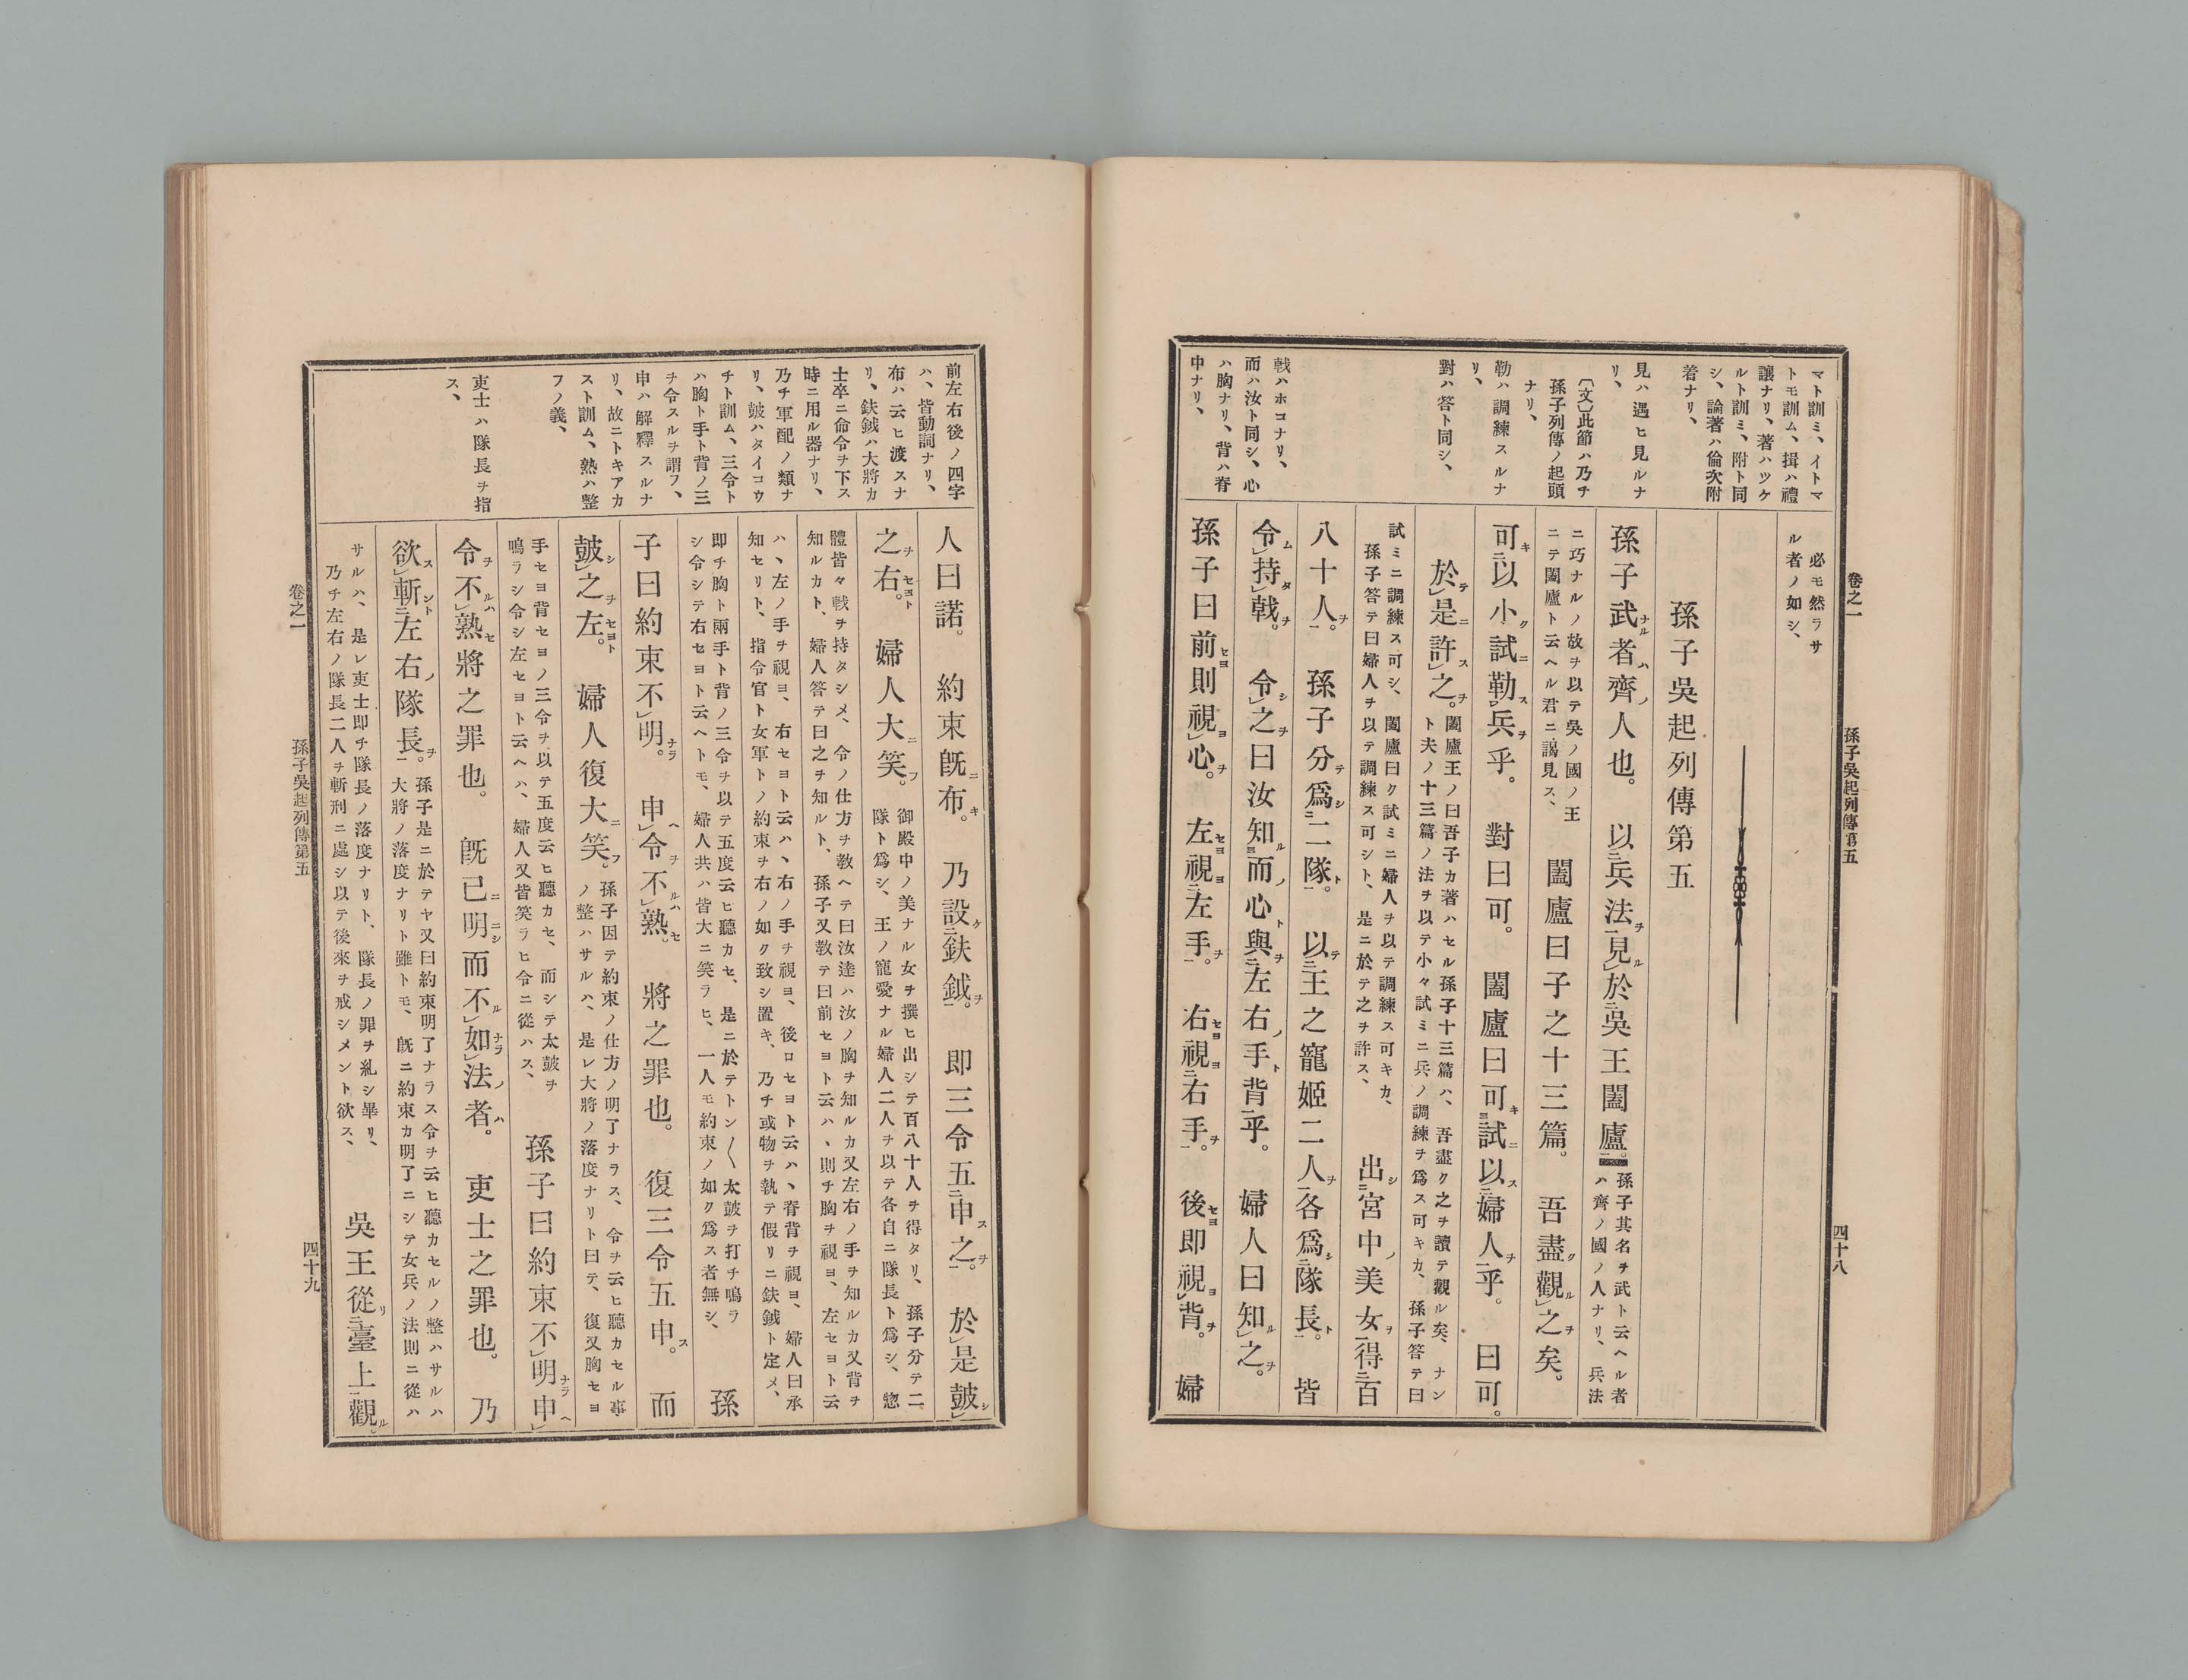 マト訓ミ、イトマ
トモ訓ム、揖ハ禮
讓ナリ、著ハツケ
ルト訓ミ、附ト同
シ、論著ハ倫次附
着ナリ、
見ハ遇ヒ見ルナ
リ、
〔文〕此節ハ乃チ
孫子列傳ノ起頭
ナリ、
勒ハ調練スルナ
リ、
對ハ答ト同シ、
戟ハホコナリ、
而ハ汝ト同シ、心
ハ胸ナリ、背ハ脊
中ナリ、
卷之一
孫子吳起列傳第五
四十八
必モ然ラサ
ル者ノ如シ、
孫子吳起列傳第五
孫子武ナル者ハ齊ノ人也。以二兵法一チ見ル於二吳王闔廬一。
孫子其名チ武ト云ヘル者
ハ齊ノ國ノ人ナリ、兵法
ニ巧ナルノ故ヲ以テ吳ノ國ノ王
ニテ闔廬ト云ヘル君ニ謁見ス、
闔廬曰子之十三篇。吾盡ク觀ル之ヲ矣。
可キ二以小ク試ニ勒ス一レ兵ヲ乎。對曰可。闔廬曰可キ三試ニ以ス二婦人一チ乎。曰可。
於テレ是ニ許スレ之チ。
闔廬王ノ曰吾子カ著ハセル孫子十三篇ハ、吾盡ク之ヲ讀テ觀ル矣、ナン
ト夫ノ十三篇ノ法ヲ以テ小々試ミニ兵ノ調練ヲ爲ス可キカ、孫子答テ曰
試ミニ調練ス可シ、闔廬曰ク試ミニ婦人ヲ以テ調練ス可キカ、
孫子答テ曰婦人ヲ以テ調練ス可シト、是ニ於テ之ヲ許ス、
出シ二宮中ノ美女一ヲ得二百
八十人一ヲ。孫子分テ爲シ二二隊一ト。以テ二王之寵姬二人一チ各爲シ二隊長一ト。皆
令ムレ持タレ戟チ。令シレ之チ曰汝知ル三而ノ心ト與ヲ二左右ノ手ト背一乎。婦人曰知ルレ之チ。
孫子曰前セヨ則視ヨレ心チ。左セヨ視ヨ二左手一チ。右セヨ視ヨ二右手一チ。後セヨ即視ヨレ背チ。婦
前左右後ノ四字
ハ、皆動詞ナリ、
布ハ云ヒ渡スナ
リ、鈇鉞ハ大將カ
士卒ニ命令ヲ下ス
時ニ用ル器ナリ、
乃チ軍配ノ類ナ
リ、皷ハタイコウ
チト訓ム、三令ト
ハ胸ト手ト背ノ三
ヲ令スルチ謂フ、
申ハ解釋スルナ
リ、故ニトキアカ
スト訓ム、熟ハ整
フノ義、
吏士ハ隊長ヲ指
ス、
人曰諾。約束旣ニ布キ。乃設ケ二鈇鉞一チ。即三令五二申ス之一チ。於レ是皷シレ
之チ右セヨト。婦人大ニ笑フ。
御殿中ノ美ナル女ヲ撰ヒ出シテ百八十人ヲ得タリ、孫子分テ二
隊ト爲シ、王ノ寵愛ナル婦人二人ヲ以テ各自ニ隊長ト爲シ、惣
體皆々戟ヲ持タシメ、令ノ仕方ヲ敎ヘテ曰汝達ハ汝ノ胸チ知ルカ又左右ノ手ヲ知ルカ又背ヲ
知ルカト、婦人答テ曰之チ知ルト、孫子又敎テ曰前セヨト云ハヽ則チ胸ヲ視ヨ、左セヨト云
ハヽ左ノ手チ視ヨ、右セヨト云ハヽ右ノ手ヲ視ヨ、後ロセヨト云ハヽ脊背チ視ヨ、婦人曰承
知セリト、指令官ト女軍トノ約束ヲ右ノ如ク致シ置キ、乃チ或物ヲ執テ假リニ鈇鉞ト定メ、
即チ胸ト兩手ト背ノ三令チ以テ五度云ヒ聽カセ、是ニ於テトン〱太皷ヲ打チ鳴ラ
シ令シテ右セヨト云ヘトモ、婦人共ハ皆大ニ笑ラヒ、一人モ約束ノ如ク爲ス者無シ、
孫
子曰約束不レ明ナラ。申ヘレ令ヲ不ルハレ熟セ。將之罪也。復三令五申ス。而
皷シレ之チ左セヨト。婦人復大ニ笑フ。
孫子因テ約束ノ仕方ノ明了ナラス、令ヲ云ヒ聽カセル事
ノ整ハサルハ、是レ大將ノ落度ナリト曰テ、復又胸セヨ
手セヨ背セヨノ三令ヲ以テ五度云ヒ聽カセ、而シテ太皷ヲ
鳴ラシ令シ左セヨト云ヘハ、婦人又皆笑ラヒ令ニ從ハス、
孫子曰約束不レ明ナラ申ヘレ
令ヲ不ルハレ熟セ將之罪也。旣已ニ明ニシ而不ルレ如ナラレ法ノ者ハ。吏士之罪也。乃
欲スレ斬ント二左右ノ隊長一ヲ。
孫子是ニ於テヤ又曰約束明了ナラス令ヲ云ヒ聽カセルノ整ハサルハ
大將ノ落度ナリト雖トモ、旣ニ約束カ明了ニシテ女兵ノ法則ニ從ハ
サルハ、是レ吏士即チ隊長ノ落度ナリト、隊長ノ罪ヲ糺シ畢リ、
乃チ左右ノ隊長二人ヲ斬刑ニ處シ以テ後來ヲ戒シメント欲ス、
吳王從リ二臺上一觀ル。
卷之一
孫子吳起列傳第五
四十九